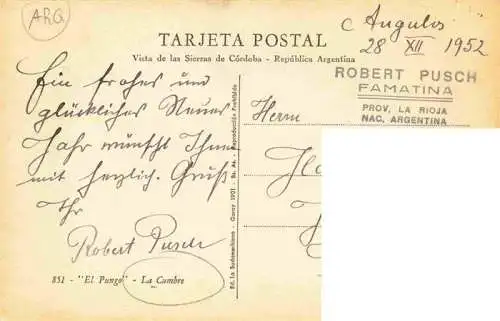 ARG
TARJETA POSTAL
Vista de las Sierras de Córdoba - República Argentina
C Angulos
28 XII 1952
ROBERT PUSCH
FAMATINA
PROV. LA RIOJA
NAC. ARGENTINA
Ein frohes und
glückliches Neues
Jahr wünscht Ihnen
mit herzlich. Gruß
Ihr
Robert Pusch
Herrn
851 - "El Pungo" - La Cumbre
Garay 1901 - Bs. As. - Reproducción Prohibida